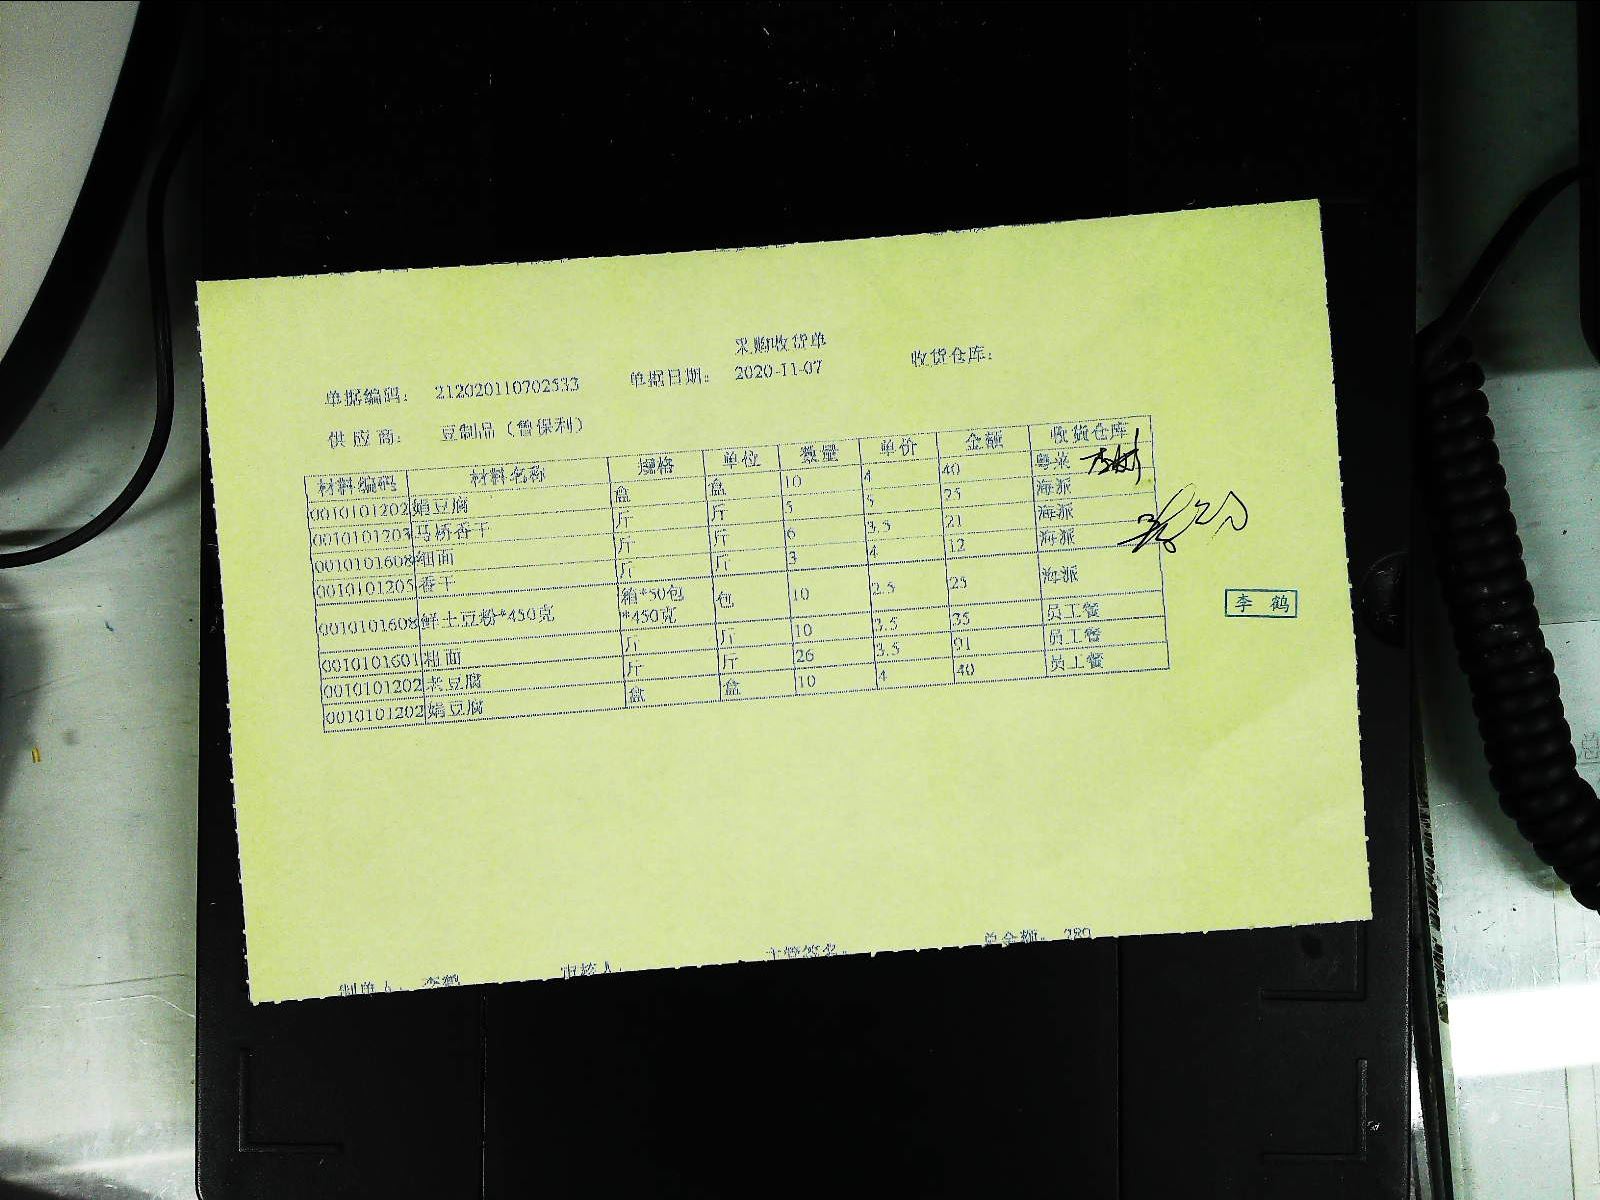 采购收货单
单据编码： 212020110702533 单据日期： 2020-11-07 收货仓库：
供应商： 豆制品（曾保利）
材料编码 材料名称 规格 单位 数量 单价 金额 收货仓库
0010101202 娟豆腐 盒 盒 10 4 40 粤菜
0010101203 马桥香干 斤 斤 5 5 25 海派
0010101608 细面 斤 斤 6 3.5 21 海派
0010101205 香干 斤 斤 3 4 12 海派
0010101608 鲜土豆粉*450克 箱*50包*450克 包 10 2.5 25 海派
0010101601 粗面 斤 斤 10 3.5 35 员工餐
0010101202 老豆腐 斤 斤 26 3.5 91 员工餐
0010101202 娟豆腐 盒 盒 10 4 40 员工餐
李鹤
制单人： 李鹤 审核人： 主管签名： 总金额： 289